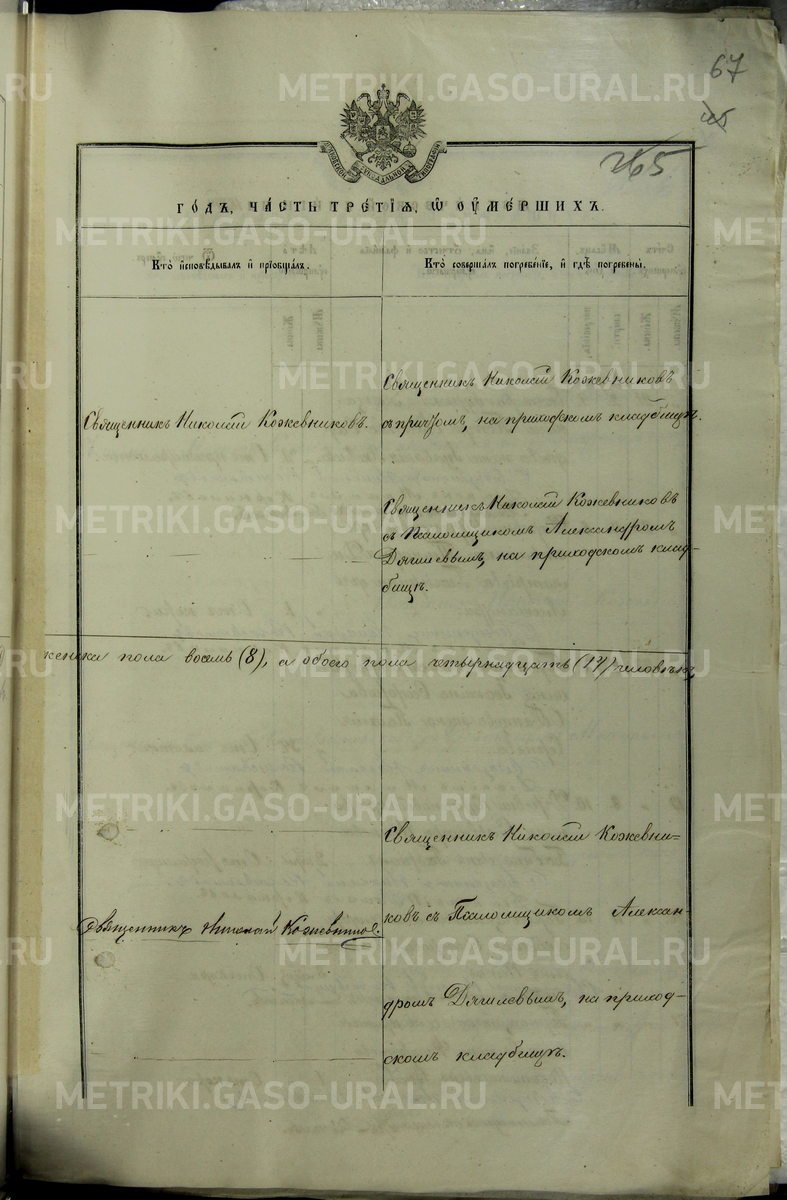 67
265
ГОДЪ, ЧАСТЬ ТРЕТІЯ, Ѡ ОУМЕРШИХЪ.
Кто исповѣдывалъ и пріобщалъ.
Кто совершалъ погребеніе, и гдѣ погребены.
Священникъ Николай Кожевниковъ
съ причтомъ, на приходскомъ кладбищѣ.
Священникъ Николай Кожевниковъ.
Священникъ Николай Кожевниковъ
съ Псаломщикомъ Александромъ
Дягилевымъ, на приходскомъ клад-
бищѣ.
женска пола восемь (8), а обоего пола четырнадцать (14) человѣкъ,
Священникъ Николай Кожевни=
ковъ съ Псаломщикомъ Алексан-
Священникъ Николай Кожевников.
дромъ Дягилевымъ, на приход-
скомъ кладбищѣ.
METRIKI.GASO-URAL.RU